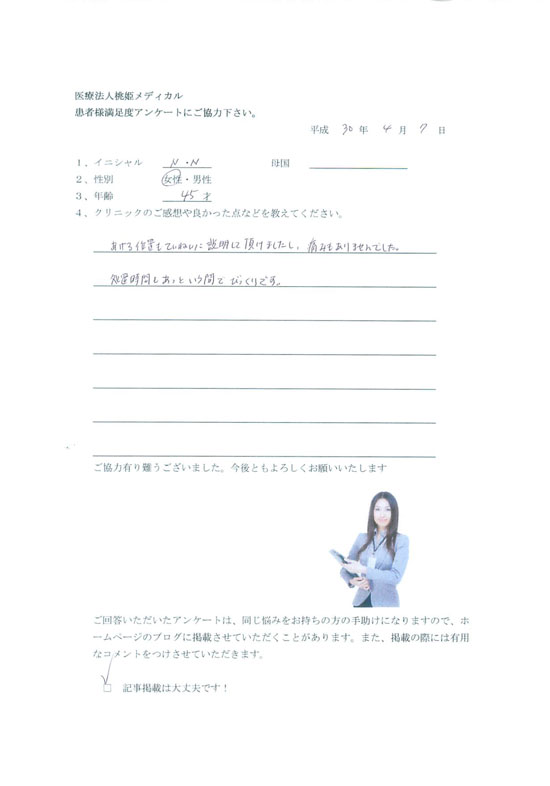 医療法人桃姫メディカル
患者様満足度アンケートにご協力下さい。
平成 30 年 4 月 7 日
1、イニシャル N・N 母国
2、性別 女性・男性
3、年齢 45才
4、クリニックのご感想や良かった点などを教えてください。
あける位置もていねいに説明して頂けましたし、痛みもありませんでした。
処置時間もあっという間でびっくりです。
ご協力有り難うございました。今後ともよろしくお願いいたします
ご回答いただいたアンケートは、同じ悩みをお持ちの方の手助けになりますので、ホ
ームページのブログに掲載させていただくことがあります。また、掲載の際には有用
なコメントをつけさせていただきます。
□ 記事掲載は大丈夫です！